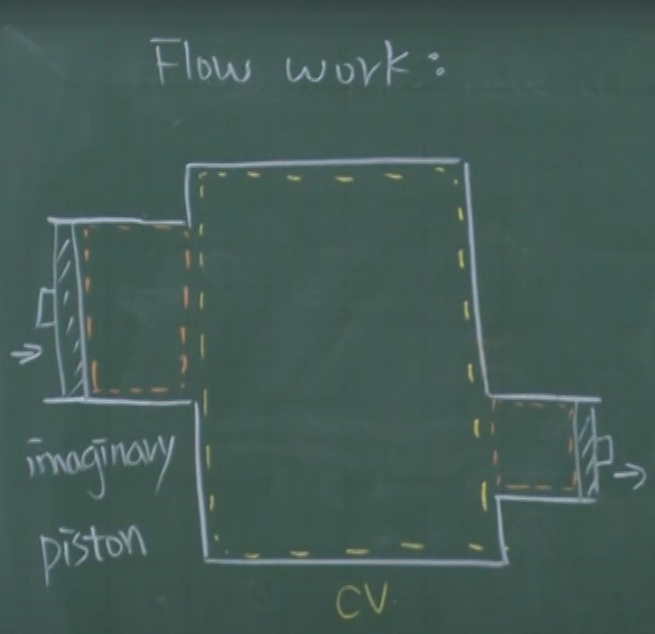 Flow work:
imaginary
piston
CV